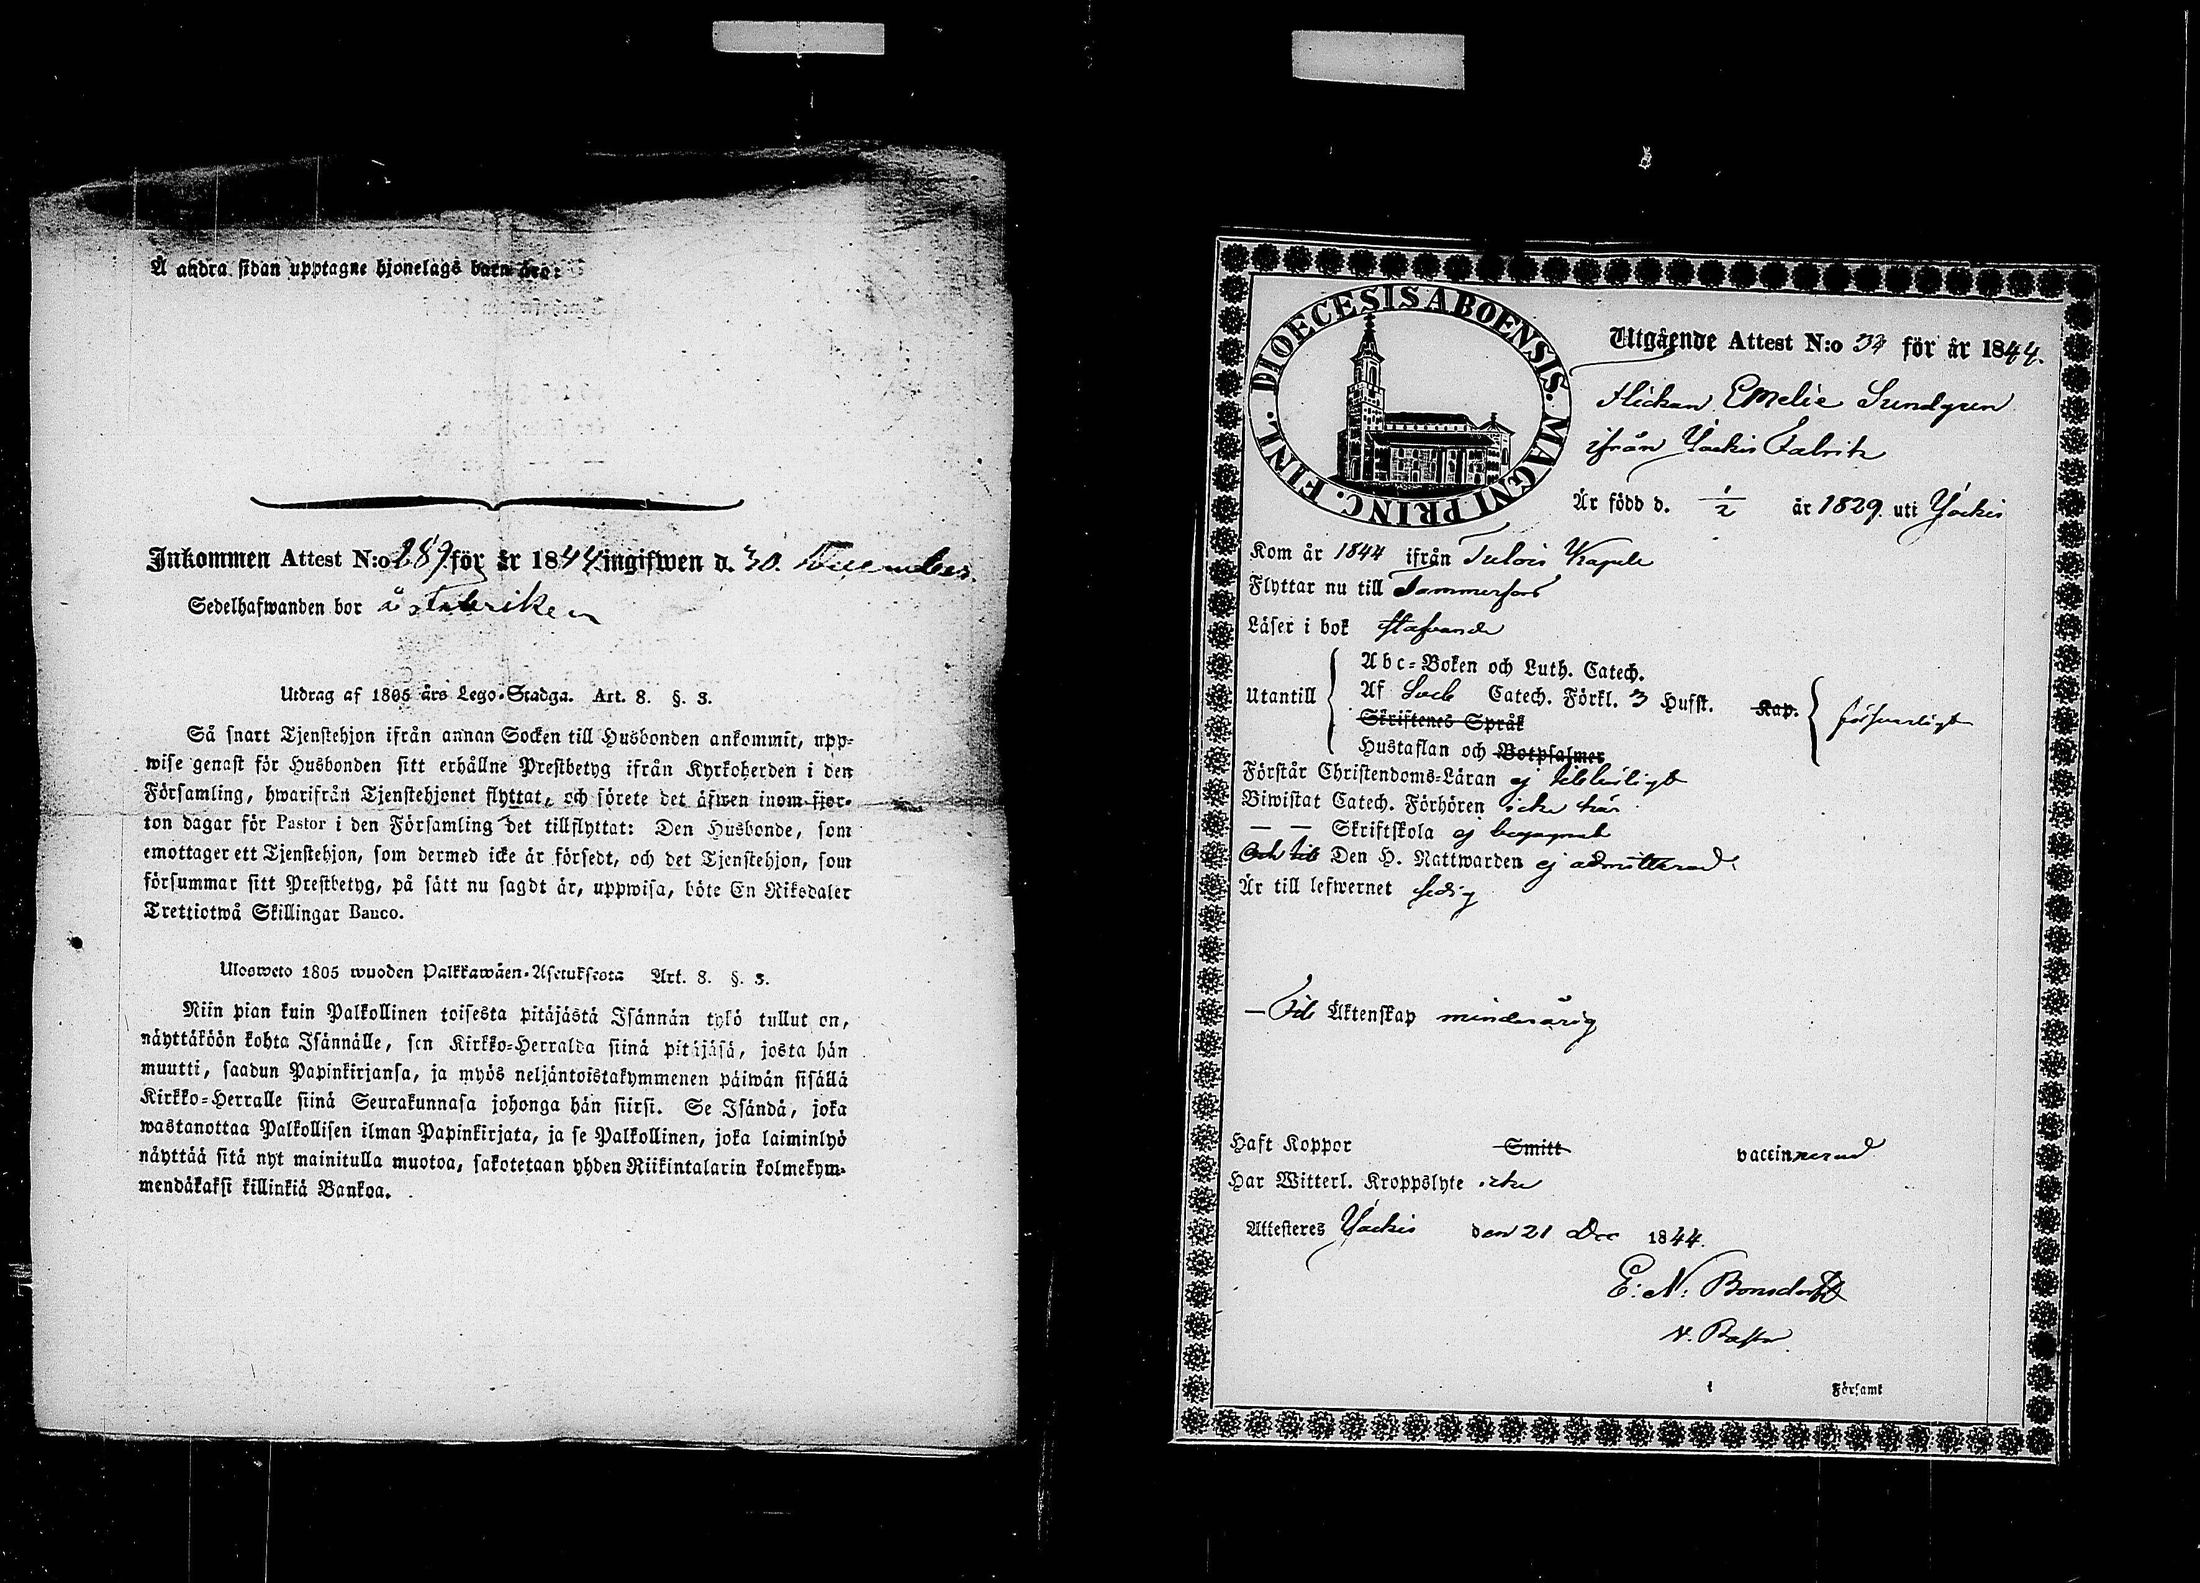 Å andra sidan upptagne hjonelags barn äro:
Inkommen Attest N:o 289 för år 1844 ingifwen d. 30. December.
Sedelhafwanden bor å Fabriken
Utdrag af 1805 års Lego-Stadga. Art. 8. §. 3.
Så snart Tjenstehjon ifrån annan Socken till Husbonden ankommit, upp-
wise genast för Husbonden sitt erhållne Prestbetyg ifrån Kyrkoherden i den
Församling, hwarifrån Tjenstehjonet flyttat, och förete det äfwen inom fjor-
ton dagar för Pastor i den Församling det tillflyttat: Den Husbonde, som
emottager ett Tjenstehjon, som dermed icke är försedt, och det Tjenstehjon, som
försummar sitt Prestbetyg, på sätt nu sagdt är, uppwisa, böte En Riksdaler
Trettiotwå Skillingar Banco.
Ulosweto 1805 wuoden Palkkawäen-Asetuksesta Art. 8. §. 3.
Niin pian kuin Palkollinen toisesta pitäjästä Isännän tykö tullut on,
näyttäköön kohta Isännälle, sen Kirkko-Herralda siinä pitäjäsä, josta hän
muutti, saadun Papinkirjansa, ja myös neljäntoistakymmenen päiwän sisällä
Kirkko-Herralle siinä Seurakunnasa johonga hän siirsi. Se Isändä, joka
wastanottaa Palkollisen ilman Papinkirjata, ja se Palkollinen, joka laiminlyö
näyttää sitä nyt mainitulla muotoa, sakotetaan yhden Riikintalarin kolmekym-
mendäkaksi killinkiä Bankoa.
DIOECESIS ABOENSIS. MAGNI PRINC. FINL.
Utgående Attest N:o för år 1844.
Flickan Emelie Sundgren
ifrån Jockis Fabrik
Är född d. 1/2 år 1829. uti Jockis
Kom år 1844 ifrån Tulois Kapell
Flyttar nu till Tammerfors
Läser i bok stafvande
Utantill
Abc-Boken och Luth. Catech.
Af Catech. Förkl. 3 Hufst. Kap. försvarligt
Skriftenes Språk
Hustaflan och Botpsalmer
Förstår Christendoms-Läran ej
Biwistat Catech. Förhören icke här
— — Skriftskola ej begagnat
Och till Den H. Nattwarden ej admitterad.
Är till lefwernet sedig
— Till Äktenskap minderårig
Haft Koppor Smitt vaccinnerad
Har Witterl. Kroppslyte icke
Attesteres Jockis den 21 Dec 1844.
E: N: Bonsdorff
V. Pastor
i Församl